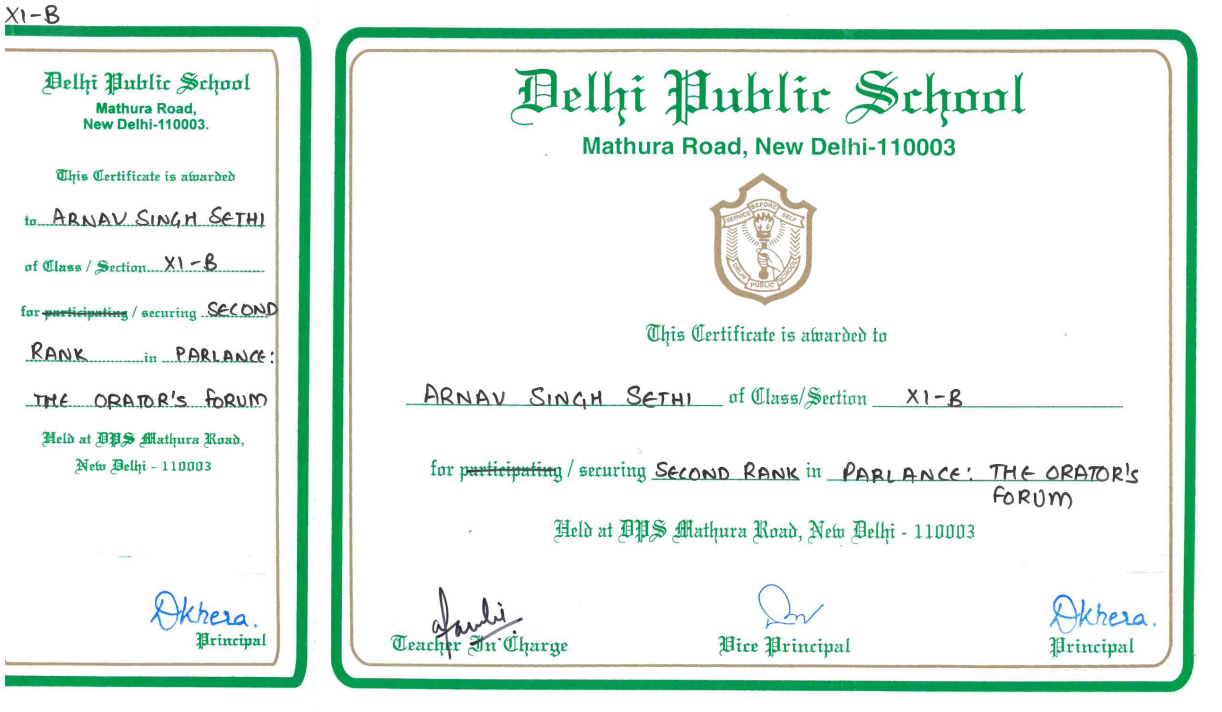 XI-B
Delhi Public School
Mathura Road,
New Delhi-110003.
This Certificate is awarded
to ARNAV SINGH SETHI
of Class / Section XI-B
for participating / securing SECOND
RANK in PARLANCE:
THE ORATOR'S FORUM
Held at DPS Mathura Road,
New Delhi - 110003
Dkhera.
Principal
Delhi Public School
Mathura Road, New Delhi-110003
SERVICE BEFORE SELF
DELHI PUBLIC SCHOOL
This Certificate is awarded to
ARNAV SINGH SETHI of Class/Section XI-B
for participating / securing SECOND RANK in PARLANCE: THE ORATOR'S
FORUM
Held at DPS Mathura Road, New Delhi - 110003
Dkhera.
Teacher In Charge Vice Principal Principal